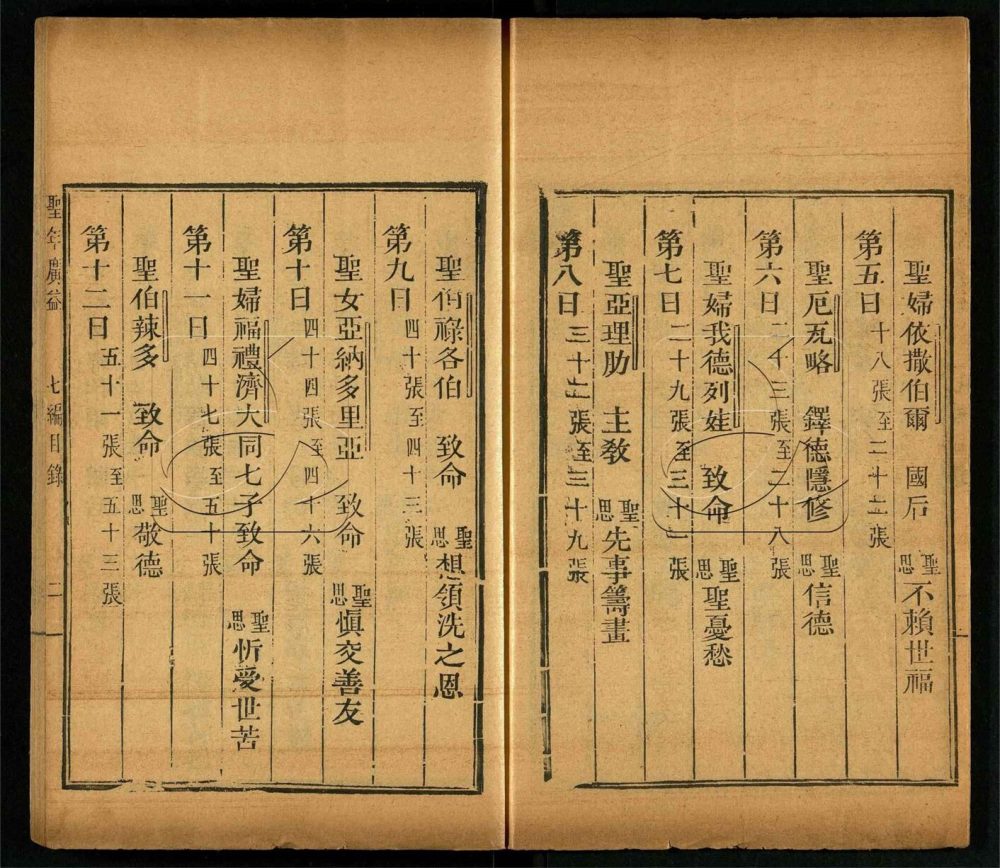 聖婦依撒伯爾　國后　聖思不賴世福
第五日　十八張至二十二張
聖厄瓦略　鐸德隱修　聖思信德
第六日　二十三張至二十八張
聖婦我德列娃　致命　聖思聖憂愁
第七日　二十九張至三十一張
聖亞理肋　主敎　聖思先事籌畫
第八日　三十二張至三十九張
聖伯祿各伯　致命　聖思想領洗之恩
第九日　四十張至四十三張
聖女亞納多里亞　致命　聖思愼交善友
第十日　四十四張至四十六張
聖婦福禮濟大同七子致命　聖思忻愛世苦
第十一日　四十七張至五十張
聖伯辣多　致命　聖思敬德
第十二日　五十一張至五十三張
聖年廣益　七編目錄　二